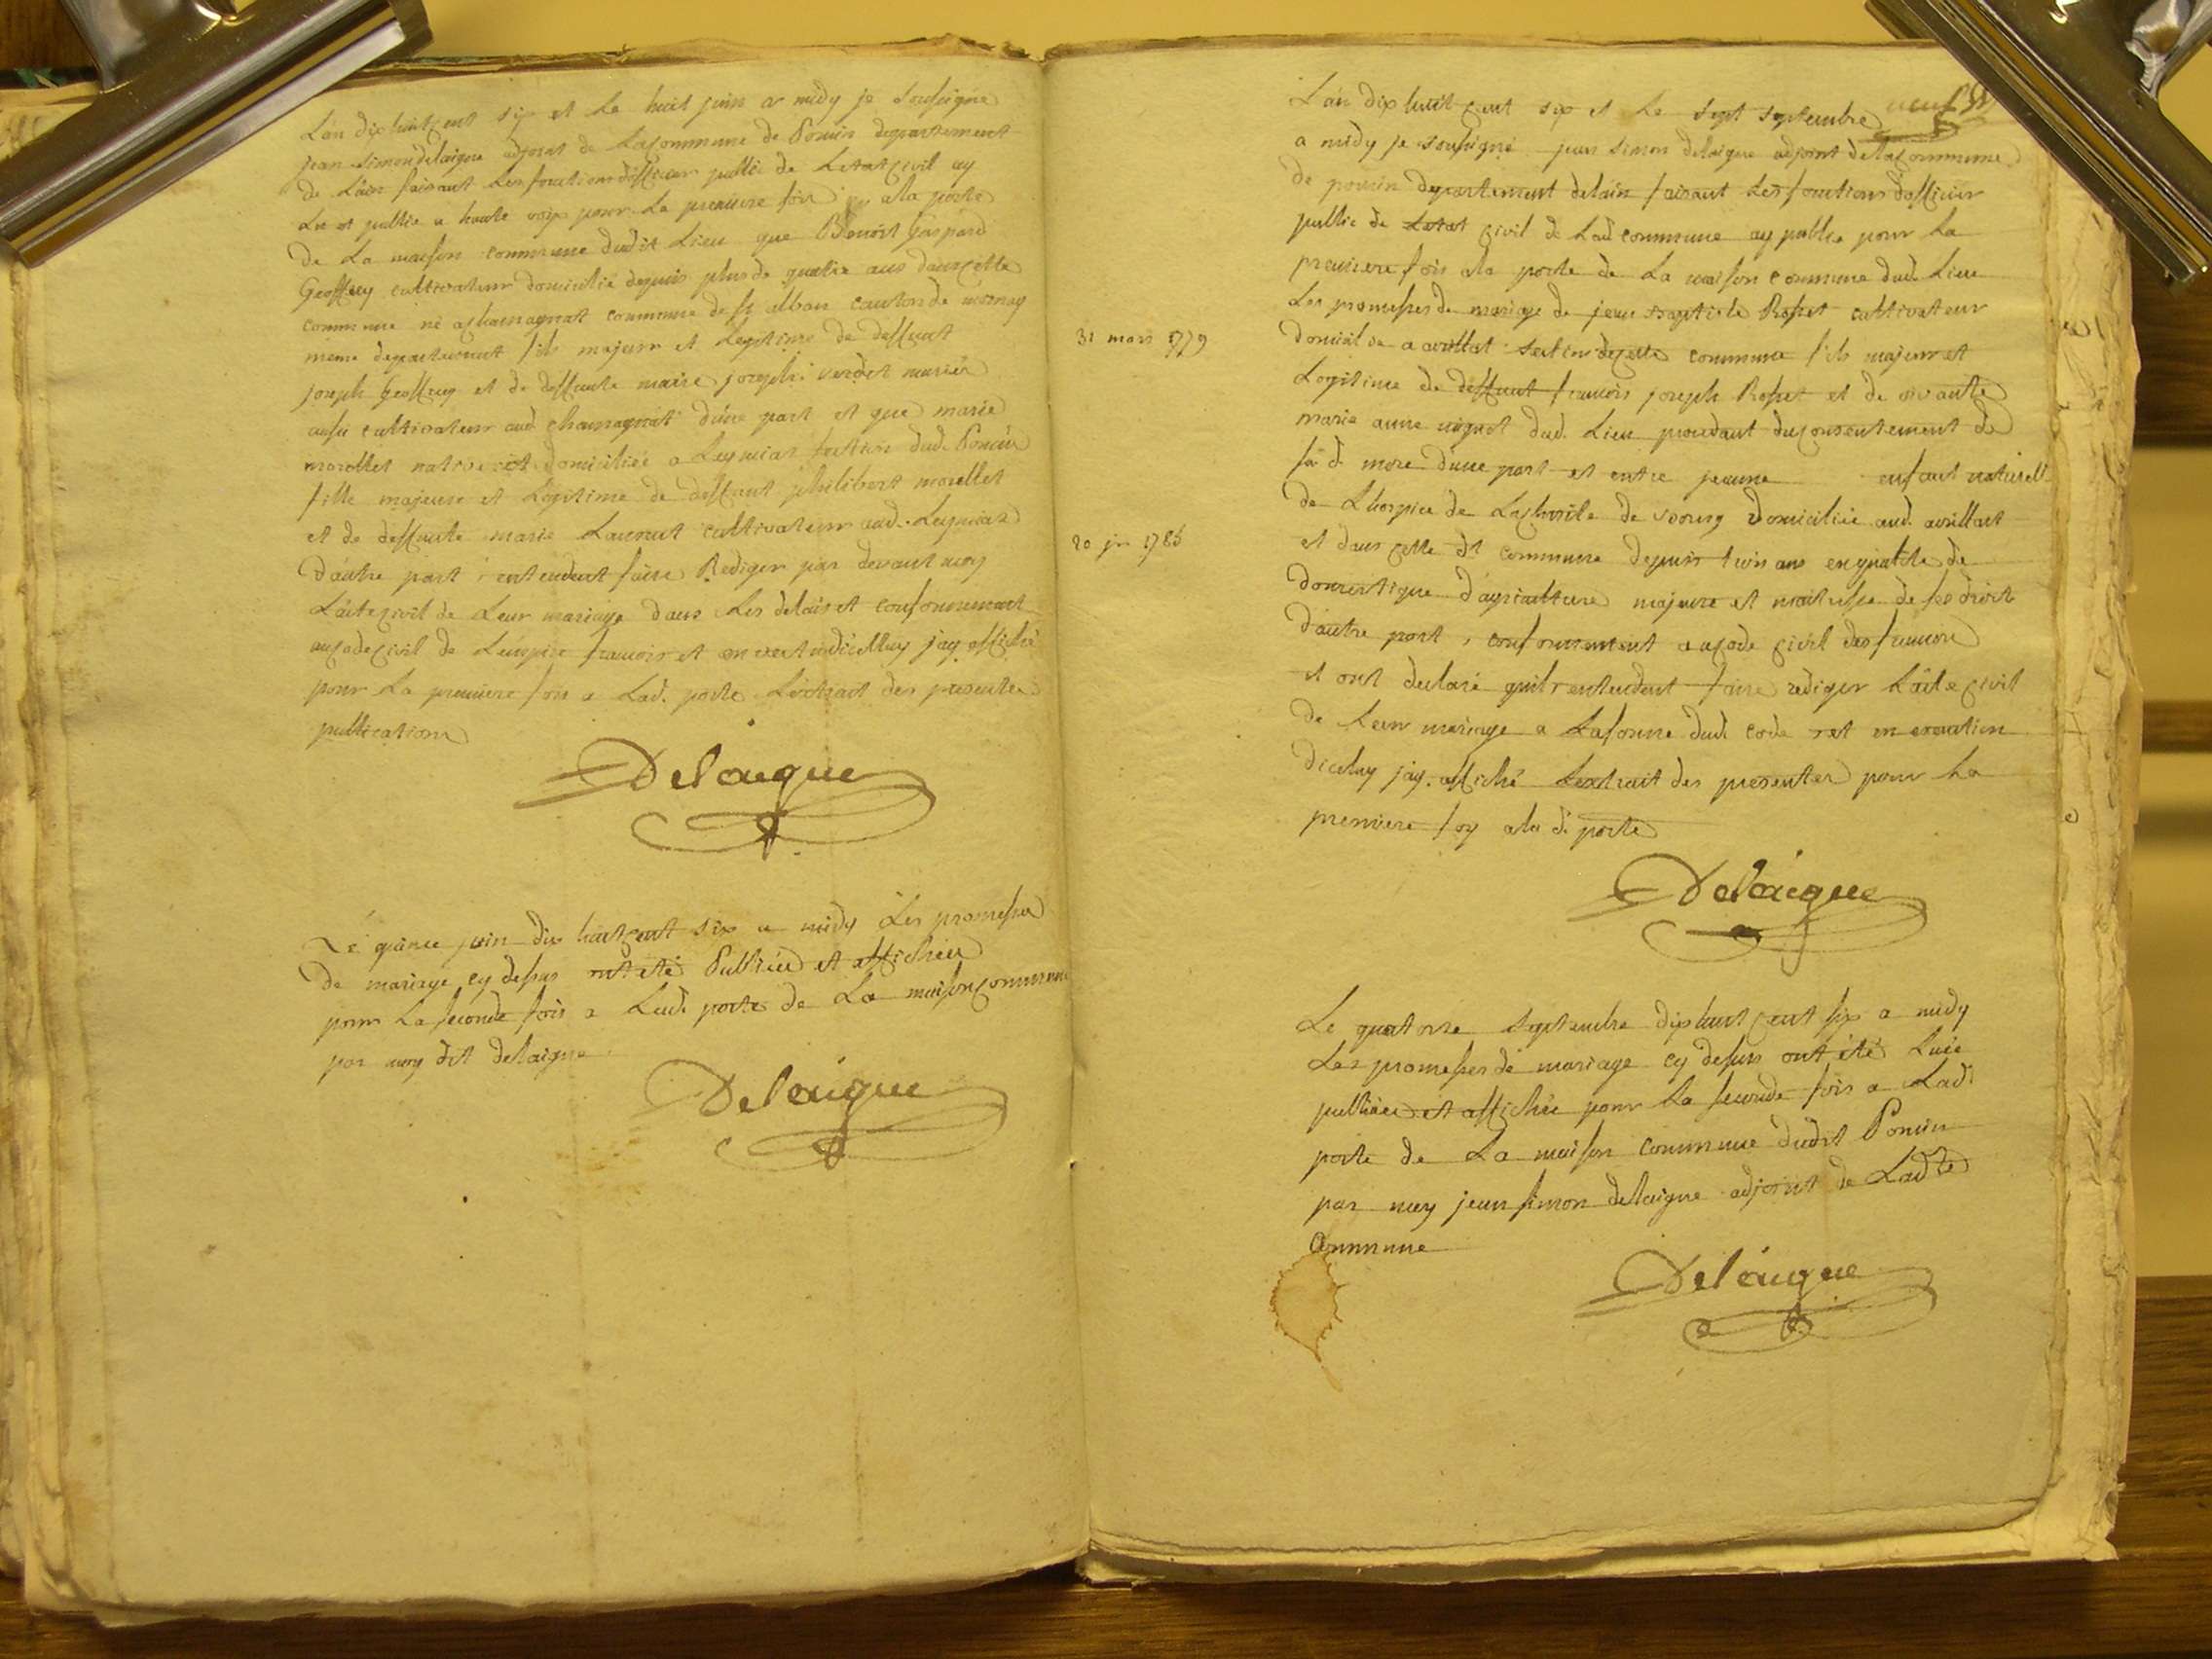 L'an dix huit cent six et le huit juin a midy je soussigné
jean simon delaigue adjoint de la commune de Poncin departement
de L'ain faisant les fonctions d'officier public de Letat civil ay
Lu et publie a haute voix pour la premiere fois a la porte
de La maison commune dudit Lieu que Benoit Gaspard
Geoffray cultivateur domicilié depuis plus de quatre ans dans cette
commune né a chamagnat commune de st alban canton de
meme departement fils majeur et Legitime de deffunt
joseph Geoffray et de deffunte marie joseph verdet mariés
cultivateur aud chamagnat d'une part et que marie
morellet native et domiciliée a Leymiat section dud. Poncin
fille majeure et Legitime de deffunt philibert morellet
et de deffunte marie cultivateur aud. Leymiat
d'autre part entendent faire Rediger par devant moy
L'acte civil de Leur mariage dans Les delais et conformement
au code civil de L'empire francois et en vertu dicelluy jay affiché
pour La premiere fois a Lad. porte L'extrait des presentes
publications
Delaigue
Le quinze juin dix huit cent six a midy Les promesses
de mariage cy dessus ont eté Publiées et affichées
pour La seconde fois a Lad. porte de La maison commune
par moy dit delaigue
Delaigue
neuf
L'an dix huit cent six et Le sept septembre
a midy je soussigné jean simon delaigue adjoint de la commune
de poncin departement de lain faisant Les fonctions d'officier
public de Letat civil de Lad commune ay publié pour La
premiere fois a la porte de La maison commune dud. Lieu
31 mars 1779
Les promesses de mariage de jean Baptiste Rosset cultivateur
domicilié a avrillat section de cette commune fils majeur et
Legitime de deffunt francois joseph Rosset et de vivante
marie anne dud. Lieu procedant du consentement de
sa d. mere d'une part et entre jeanne enfant naturelle
20 jer 1786
de L'hospice de La charité de Bourg domiciliée aud. avrillat
et dans cette dt commune depuis trois ans en qualité de
domestique d'agriculture majeure et maitresse de ses droits
d'autre part, conformement au code civil des francois
et ont declaré quils entendent faire rediger L'acte civil
de Leur mariage a La forme dud. code et en execution
dicelluy jay affiché L'extrait des presentes pour La
premiere foy a la d. porte
Delaigue
Le quatorse septembre dix huit cent six a midy
Les promesses de mariage cy dessus ont été Lues
publiées et affichées pour La seconde fois a Lad.
porte de La maison commune dudit Poncin
par moy jean simon delaigue adjoint de Ladte
Commune
Delaigue